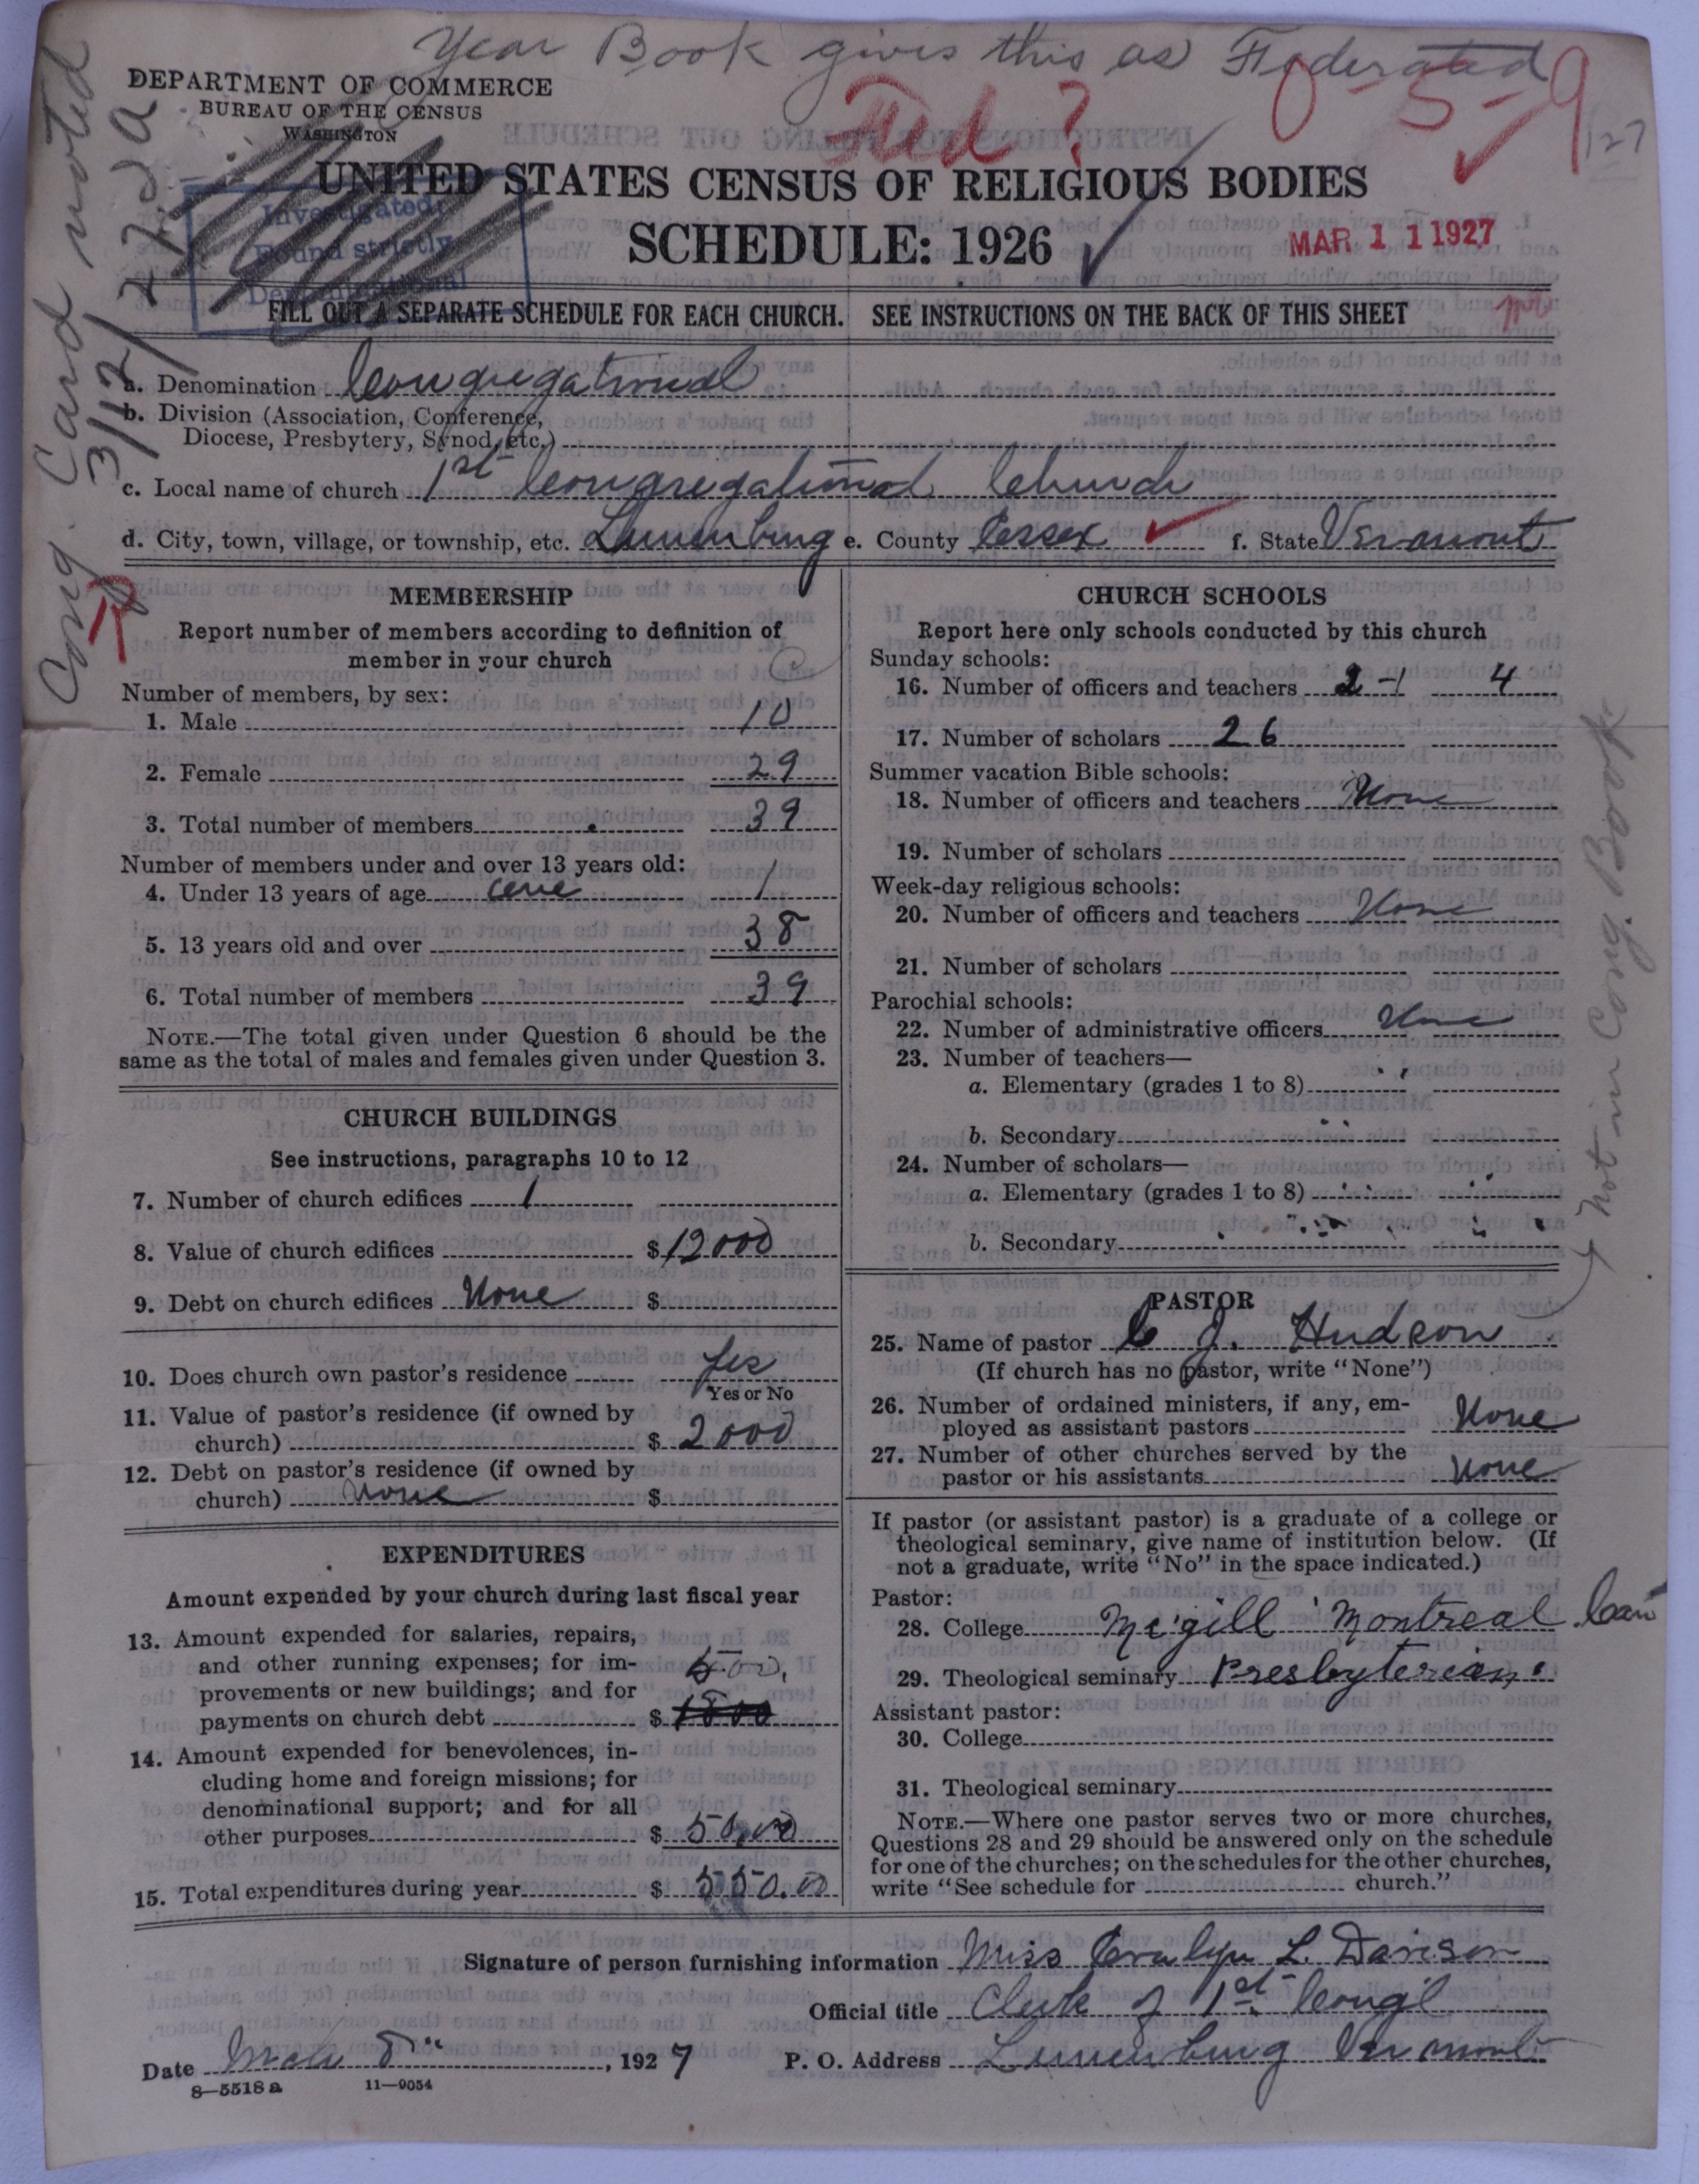 Year Book gives this as Federated
DEPARTMENT OF COMMERCE
BUREAU OF THE CENSUS
WASHINGTON
Fed ?
5-9
127
UNITED STATES CENSUS OF RELIGIOUS BODIES
SCHEDULE: 1926
MAR 11 1927
Investigated
Found strictly
Denominational
Cong. Card noted
3/12/27
FILL OUT A SEPARATE SCHEDULE FOR EACH CHURCH. SEE INSTRUCTIONS ON THE BACK OF THIS SHEET
a. Denomination Congregational
b. Division (Association, Conference,
Diocese, Presbytery, Synod, etc.)
c. Local name of church 1st Congregational Church
d. City, town, village, or township, etc. Lunenburg e. County Essex f. State Vermont
MEMBERSHIP
Report number of members according to definition of
member in your church
Number of members, by sex:
1. Male 10
2. Female 29
3. Total number of members 39
Number of members under and over 13 years old:
4. Under 13 years of age one 1
5. 13 years old and over 38
6. Total number of members 39
NOTE.—The total given under Question 6 should be the
same as the total of males and females given under Question 3.
CHURCH BUILDINGS
See instructions, paragraphs 10 to 12
7. Number of church edifices 1
8. Value of church edifices $12000
9. Debt on church edifices None $
10. Does church own pastor's residence Yes
Yes or No
11. Value of pastor's residence (if owned by
church) $ 2000
12. Debt on pastor's residence (if owned by
church) None $
EXPENDITURES
Amount expended by your church during last fiscal year
13. Amount expended for salaries, repairs,
and other running expenses; for im-
provements or new buildings; and for
payments on church debt $ 500.
14. Amount expended for benevolences, in-
cluding home and foreign missions; for
denominational support; and for all
other purposes $ 50.00
15. Total expenditures during year $ 550.00
CHURCH SCHOOLS
Report here only schools conducted by this church
Sunday schools:
16. Number of officers and teachers 4
17. Number of scholars 26
Summer vacation Bible schools:
18. Number of officers and teachers None
19. Number of scholars
Week-day religious schools:
20. Number of officers and teachers None
21. Number of scholars
Parochial schools:
22. Number of administrative officers None
23. Number of teachers—
a. Elementary (grades 1 to 8)
b. Secondary
24. Number of scholars—
a. Elementary (grades 1 to 8)
b. Secondary
Not in Cong. Book
PASTOR
25. Name of pastor C J. Hudson
(If church has no pastor, write "None")
26. Number of ordained ministers, if any, em-
ployed as assistant pastors None
27. Number of other churches served by the
pastor or his assistants None
If pastor (or assistant pastor) is a graduate of a college or
theological seminary, give name of institution below. (If
not a graduate, write "No" in the space indicated.)
Pastor:
28. College McGill Montreal Can
29. Theological seminary Presbyterian
Assistant pastor:
30. College
31. Theological seminary
NOTE.—Where one pastor serves two or more churches,
Questions 28 and 29 should be answered only on the schedule
for one of the churches; on the schedules for the other churches,
write "See schedule for church."
Signature of person furnishing information Miss L. Davison
Official title Clerk of 1st Cong'l
Date March 8, 1927 P. O. Address Lunenburg Vermont
8—5518a 11—9054